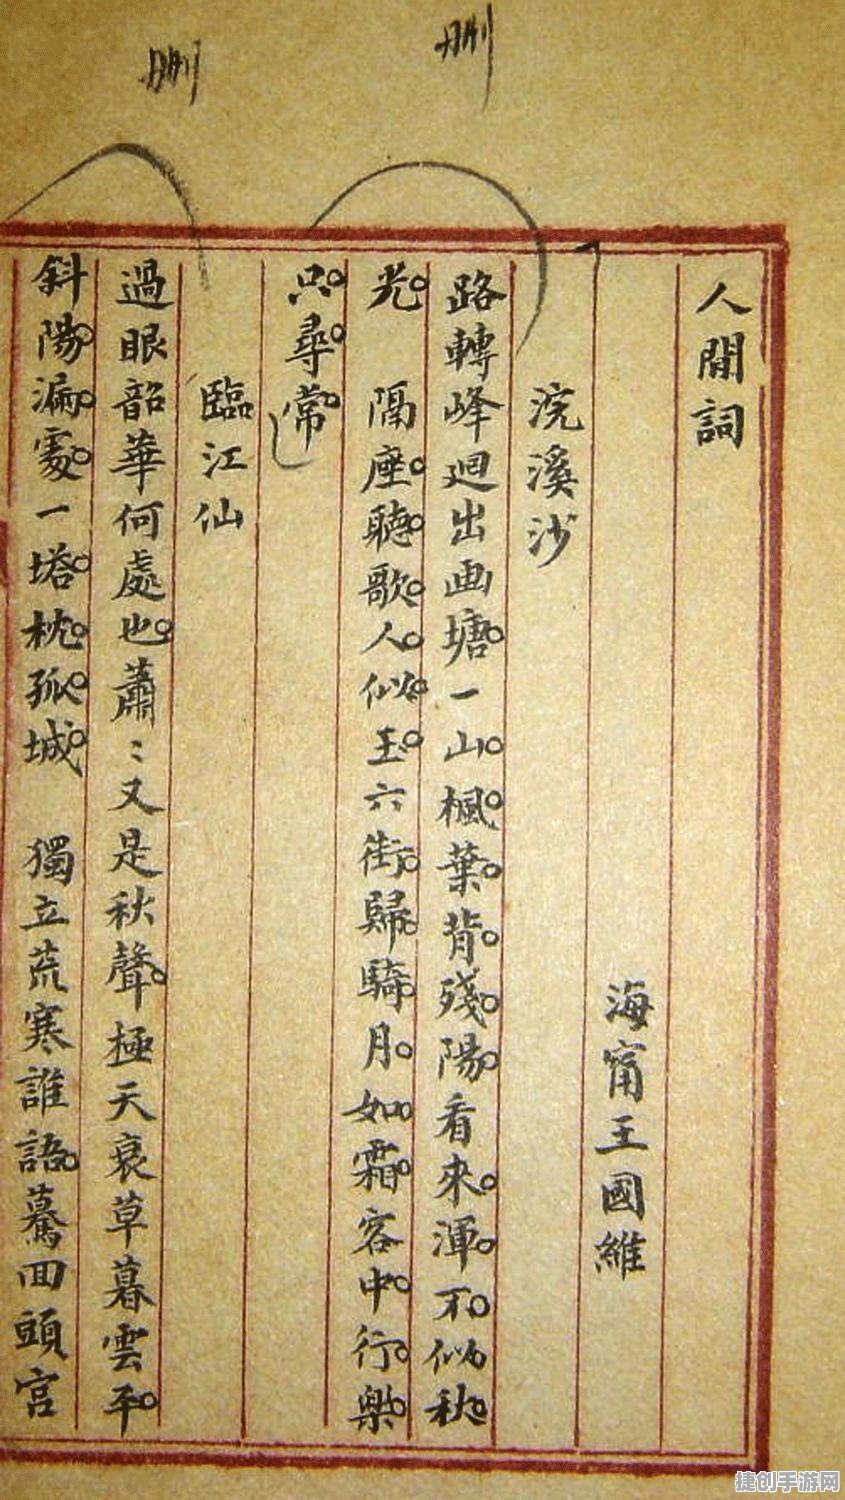 刪
刪
人間詞
海甯王國維
浣溪沙
路轉峰迴出画塘一山楓葉背殘陽看來渾不似秋
光　隔座聽歌人似玉六街歸騎月如霜客中行樂
只尋常
臨江仙
過眼韶華何處也蕭〻又是秋聲極天衰草暮雲平
斜陽漏處一塔枕孤城　獨立荒寒誰語驀回頭宮
捷创手游网